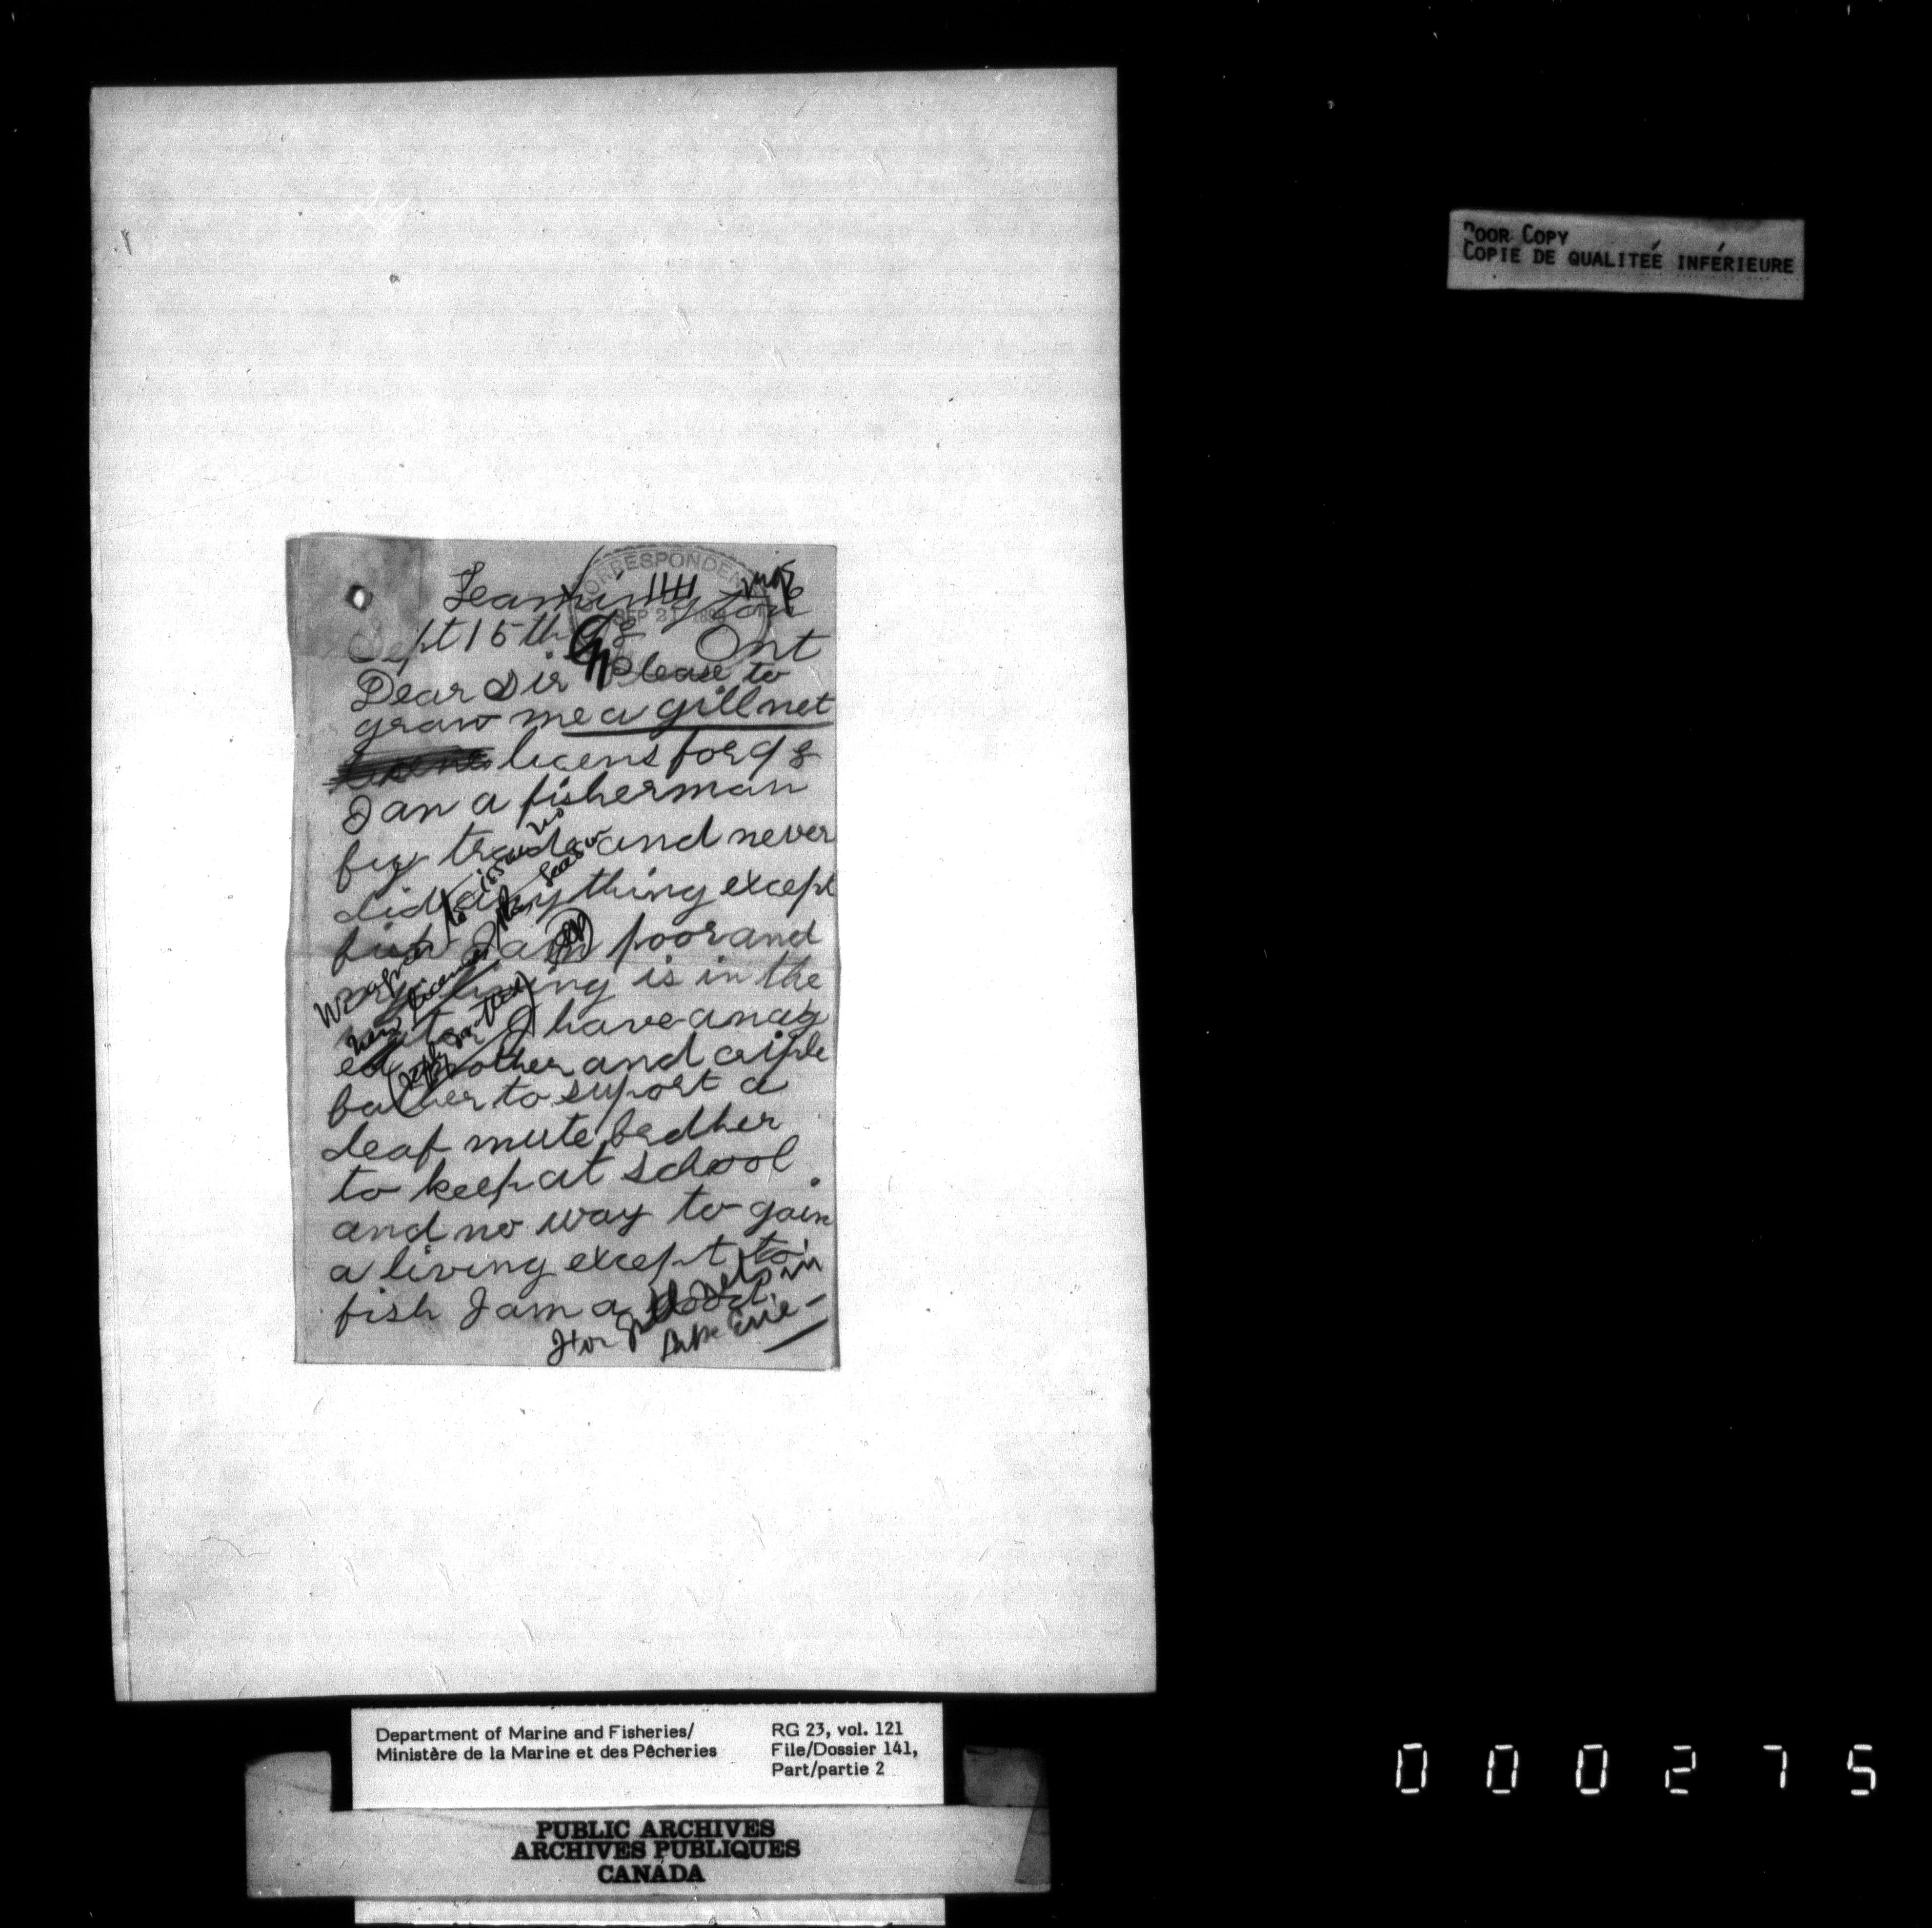 POOR COPY
COPIE DE QUALITEÉ INFÉRIEURE
CORRESPONDEN
SEP 21 1898
Leamington
Sept 15th 98 Ont
Dear Sir Please to
graw me a gill net
licens for 98
I am a fisherman
by trade and never
did anything except
fish I am poor and
my living is in the
water I have an ag
ed mother and criple
father to suport a
deaf mute brdher
to keep at school
and no way to gain
a living except to
fish I am a good
For gill nets in
Lake Erie -
Department of Marine and Fisheries/
Ministère de la Marine et des Pêcheries
RG 23, vol. 121
File/Dossier 141,
Part/partie 2
PUBLIC ARCHIVES
ARCHIVES PUBLIQUES
CANADA
000275